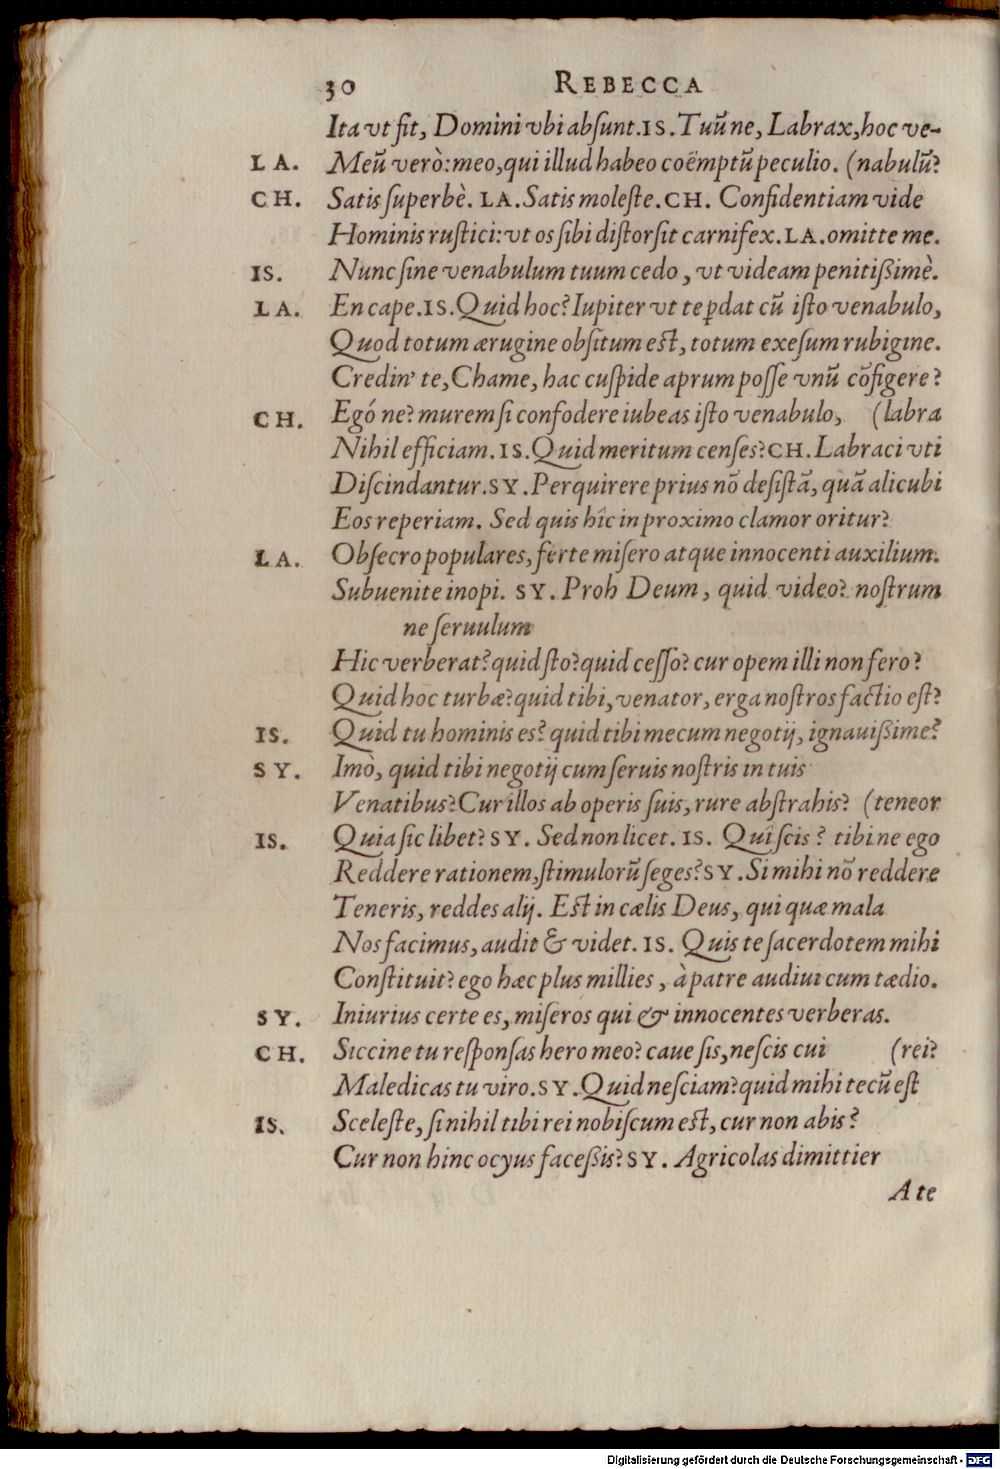 30 REBECCA
Ita vt fit, Domini vbi absunt. IS. Tuũne, Labrax, hoc ve-
LA. Meũ verò: meo, qui illud habeo coëmptũ peculio. (nabulũ?
CH. Satis superbè. LA. Satis moleste. CH. Confidentiam vide
Hominis rustici: vt os sibi distorsit carnifex. LA. omitte me.
IS. Nunc sine venabulum tuum cedo, vt videam penitißimè.
LA. En cape. IS. Quid hoc? Iupiter vt te ꝑdat cũ isto venabulo,
Quod totum ærugine obsitum est, totum exesum rubigine.
Credin' te, Chame, hac cuspide aprum posse vnũ cõfigere?
CH. Egó ne? murem si confodere iubeas isto venabulo, (labra
Nihil efficiam. IS. Quid meritum censes? CH. Labraci vti
Discindantur. SY. Perquirere prius nõ desistã, quã alicubi
Eos reperiam. Sed quis hîc in proximo clamor oritur?
LA. Obsecro populares, ferte misero atque innocenti auxilium.
Subuenite inopi. SY. Proh Deum, quid video? nostrum
ne seruulum
Hic verberat? quid sto? quid cesso? cur opem illi non fero?
Quid hoc turbæ? quid tibi, venator, erga nostros factio est?
IS. Quid tu hominis es? quid tibi mecum negotij, ignauißime?
SY. Imò, quid tibi negotij cum seruis nostris in tuis
Venatibus? Cur illos ab operis suis, rure abstrahis? (teneor
IS. Quia sic libet? SY. Sed non licet. IS. Quî scis? tibi ne ego
Reddere rationem, stimulorũ seges? SY. Si mihi nõ reddere
Teneris, reddes alij. Est in cælis Deus, qui quæ mala
Nos facimus, audit & videt. IS. Quis te sacerdotem mihi
Constituit? ego hæc plus millies, à patre audiui cum tædio.
SY. Iniurius certe es, miseros qui & innocentes verberas.
CH. Siccine tu responsas hero meo? caue sis, nescis cui (rei?
Maledicas tu viro. SY. Quid nesciam? quid mihi tecũ est
IS. Sceleste, si nihil tibi rei nobiscum est, cur non abis?
Cur non hinc ocyus faceßis? SY. Agricolas dimittier
A te
Digitalisierung gefördert durch die Deutsche Forschungsgemeinschaft - DFG